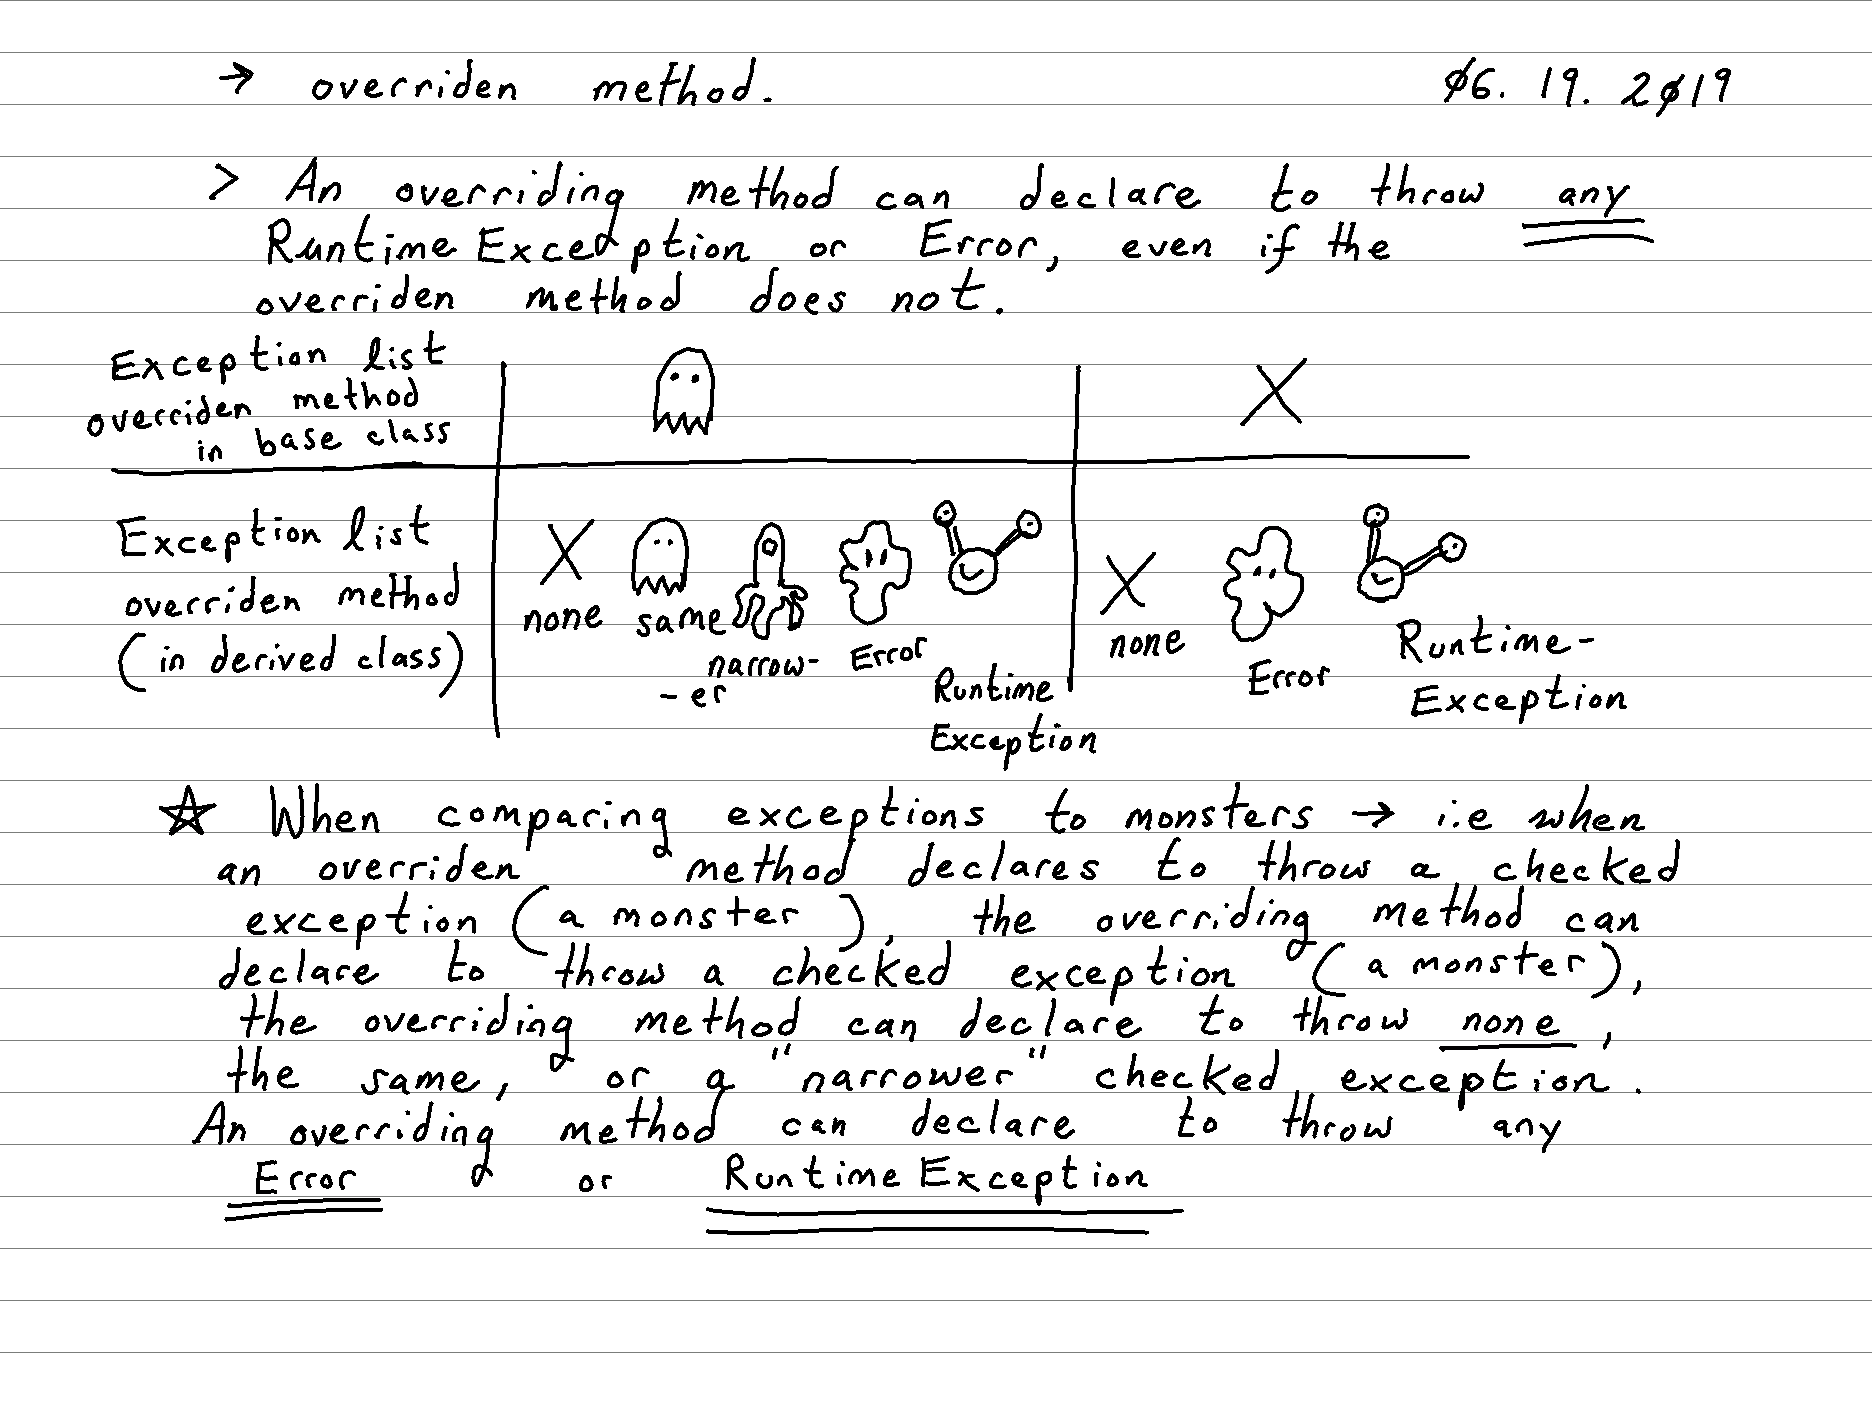 → overriden method. 06. 19. 2019
> An overriding method can declare to throw any
Runtime Exception or Error, even if the
overriden method does not.
Exception list
overriden method
in base class
X
Exception list
overriden method
(in derived class)
X
none
same
narrow-
-er
Error
Runtime
Exception
X
none
Error
Runtime-
Exception
☆ When comparing exceptions to monsters → i.e when
an overriden method declares to throw a checked
exception (a monster), the overriding method can
declare to throw a checked exception (a monster),
the overriding method can declare to throw none,
the same, or a "narrower" checked exception.
An overriding method can declare to throw any
Error or Runtime Exception